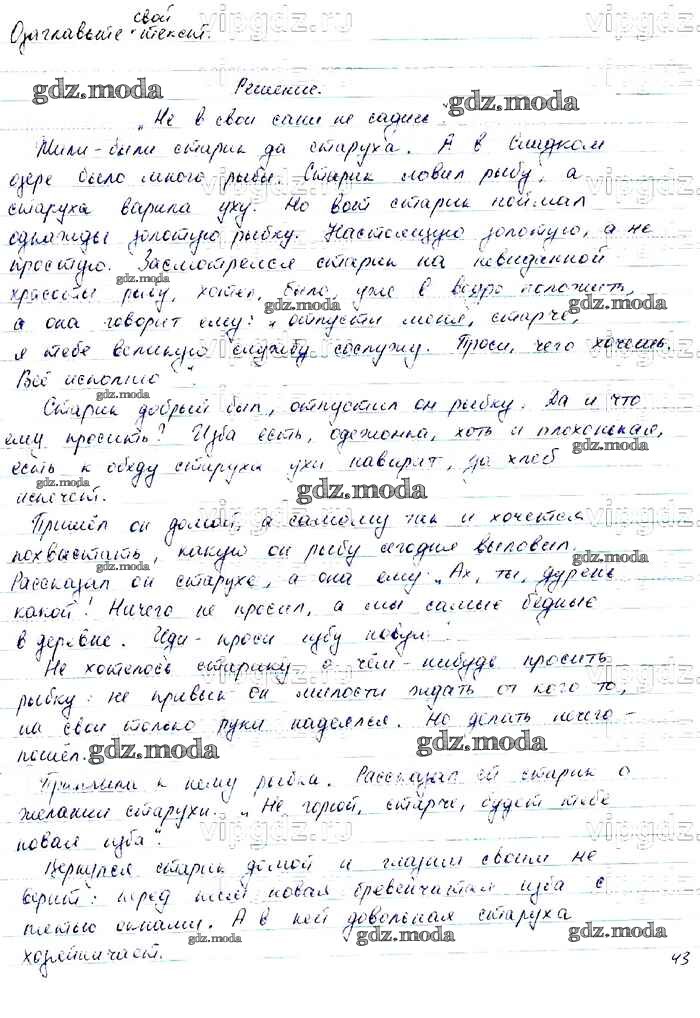 свой
Озаглавьте текст.
Решение.
„Не в свои сани не садись
Жили-были старик да старуха. А в
озере было много рыбы. Старик ловил рыбу, а
старуха варила уху. Но вот старик поймал
однажды золотую рыбку. Настоящую золотую, а не
простую. Засмотрелся старик на невиданной
красоты рыбу, хотел, было, уже в ведро положить,
а она говорит ему: „отпусти меня, старче,
я тебе великую службу сослужу. Проси, чего хочешь.
Всё исполню".
Старик добрый был, отпустил он рыбку. Да и что
ему просить? Изба есть, одежонка, хоть и плохонькая,
есть к обеду старуха ухи наварит, да хлеб
испечёт.
Пришёл он домой, а самому так и хочется
похвастать, какую он рыбу сегодня выловил.
Рассказал он старухе, а она ему „Ах, ты, дурень
какой! Ничего не просил, а мы самые бедные
в деревне. Иди-проси избу новую.
Не хотелось старику о чём-нибудь просить
рыбку: не привык он милости ждать от кого то,
на свои только руки надеялся. Но делать нечего -
пошёл.
Приплыла к нему рыбка. Рассказал ей старик о
желании старухи. „Не горюй, старче, будет тебе
новая изба".
Вернулся старик домой и глазам своим не
верит: перед ним новая бревенчатая изба с
пятью окнами. А в ней довольная старуха
хозяйничает.
43
gdz.moda
vipgdz.ru